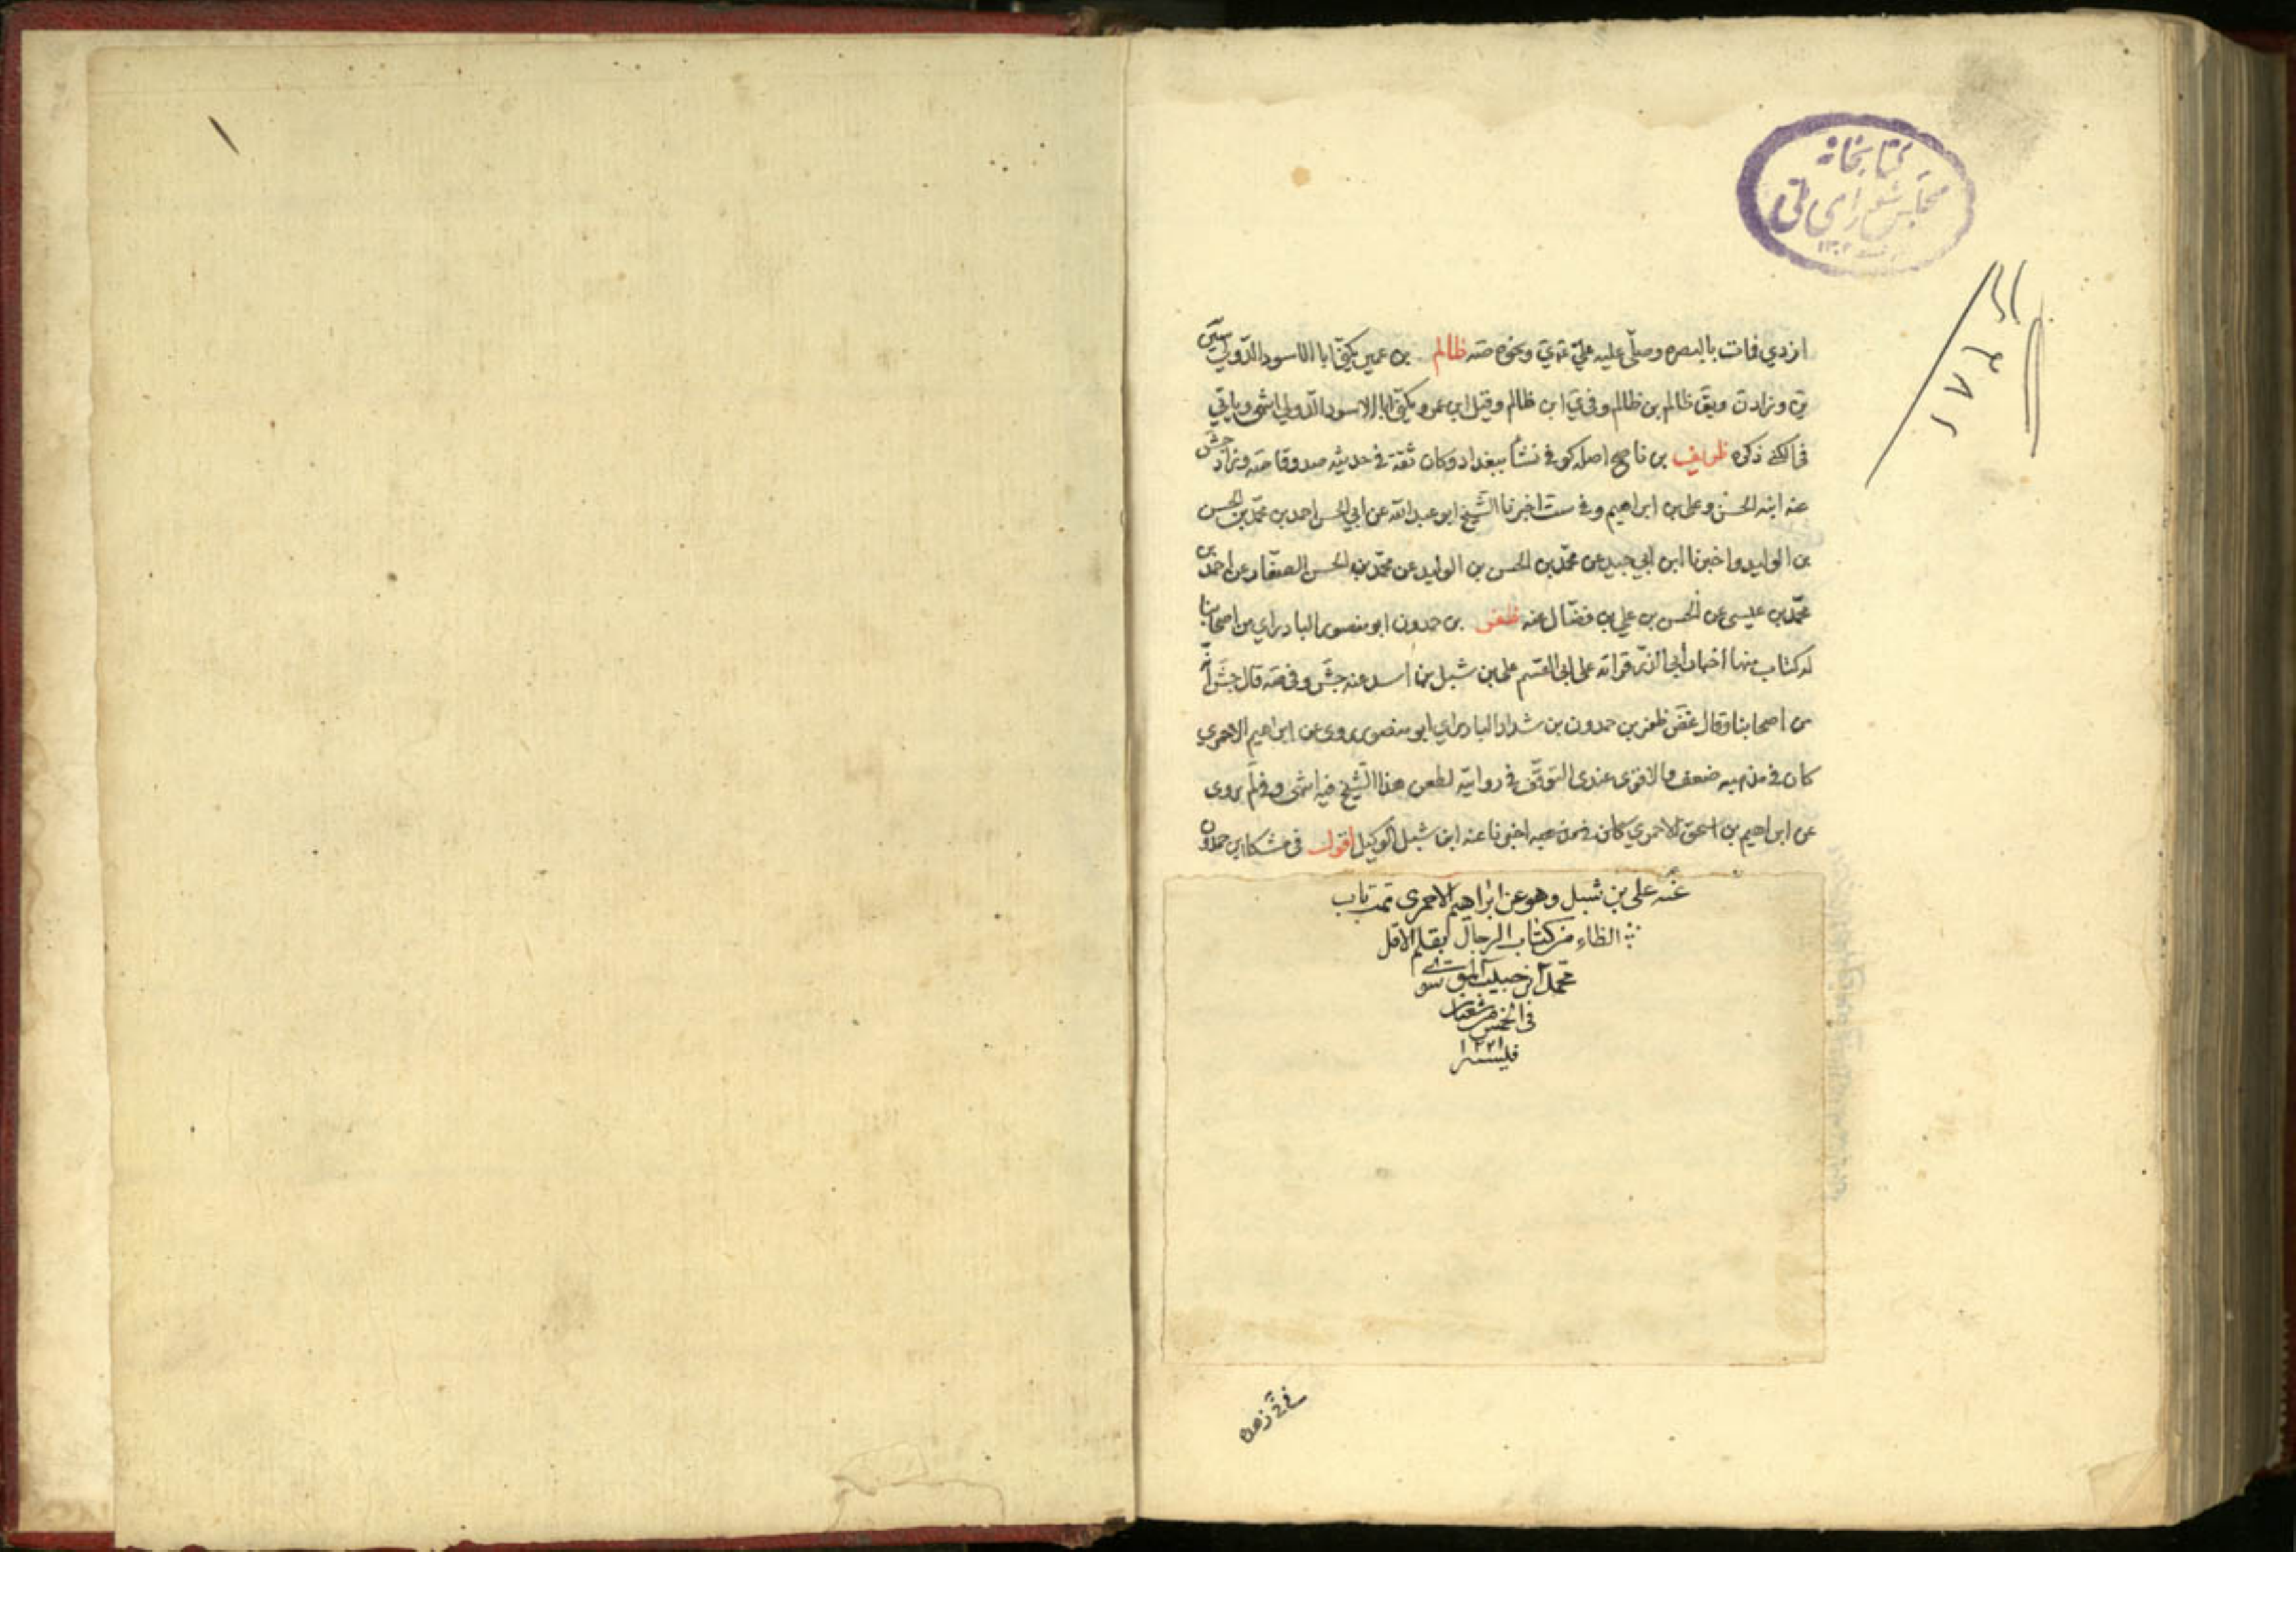 كتابخانه
مجلس شورای ملی
ازدي فمات بالبصره وصلّى عليه عليّ ونحوه صه ظالم بن عمير يكنّى ابا الاسود الدّولي سين
ق وزاد ويق ظالم بن ظالم وفي ي ابن ظالم وقيل ابن عمرو يكنّى ابا الاسود الدّولي انتهى وياتي
في الكنى ذكره ظريف بن ناصح اصله كوفي نشأ ببغداد وكان ثقة في حديثه صدوقا صه وزاد جش
عنه ابنه الحسن وعلي بن ابراهيم وفي ست اخبرنا الشّيخ ابو عبد الله عن ابي الحسن احمد بن محمّد بن الحسن
بن الوليد واخبرنا ابن ابي جيد عن محمّد بن الحسن بن الوليد عن محمّد بن الحسن الصفّار عن احمد بن
محمّد بن عيسى عن الحسن بن علي بن فضّال عنه ظفر بن حمدون ابو منصور البادرايي من اصحابنا
له كتاب منها اخبار ابي الذرّ قراته على ابي القسم علي بن شبل بن اسد عنه جش وفي صه قال جش
من اصحابنا وقال غض ظفر بن حمدون بن شداد البادرايي ابو منصور روى عن ابراهيم الاحمري
كان في مذهبه ضعف والاقوى عندى التوقّف في روايته لطعن هذا الشّيخ فيه انتهى وفي لم روى
عن ابراهيم بن اسحق الاحمري اخبرنا عنه ابن شبل الوكيل اقول في مشكا ابن حمدون
عنه على بن شبل وهو عن ابراهيم الاحمرى تمت باب
الظاء من كتاب الرجال بقلم الاقل
محمد بن حبيب الموسوى
فى الخمس من شعبان
١٢٢١